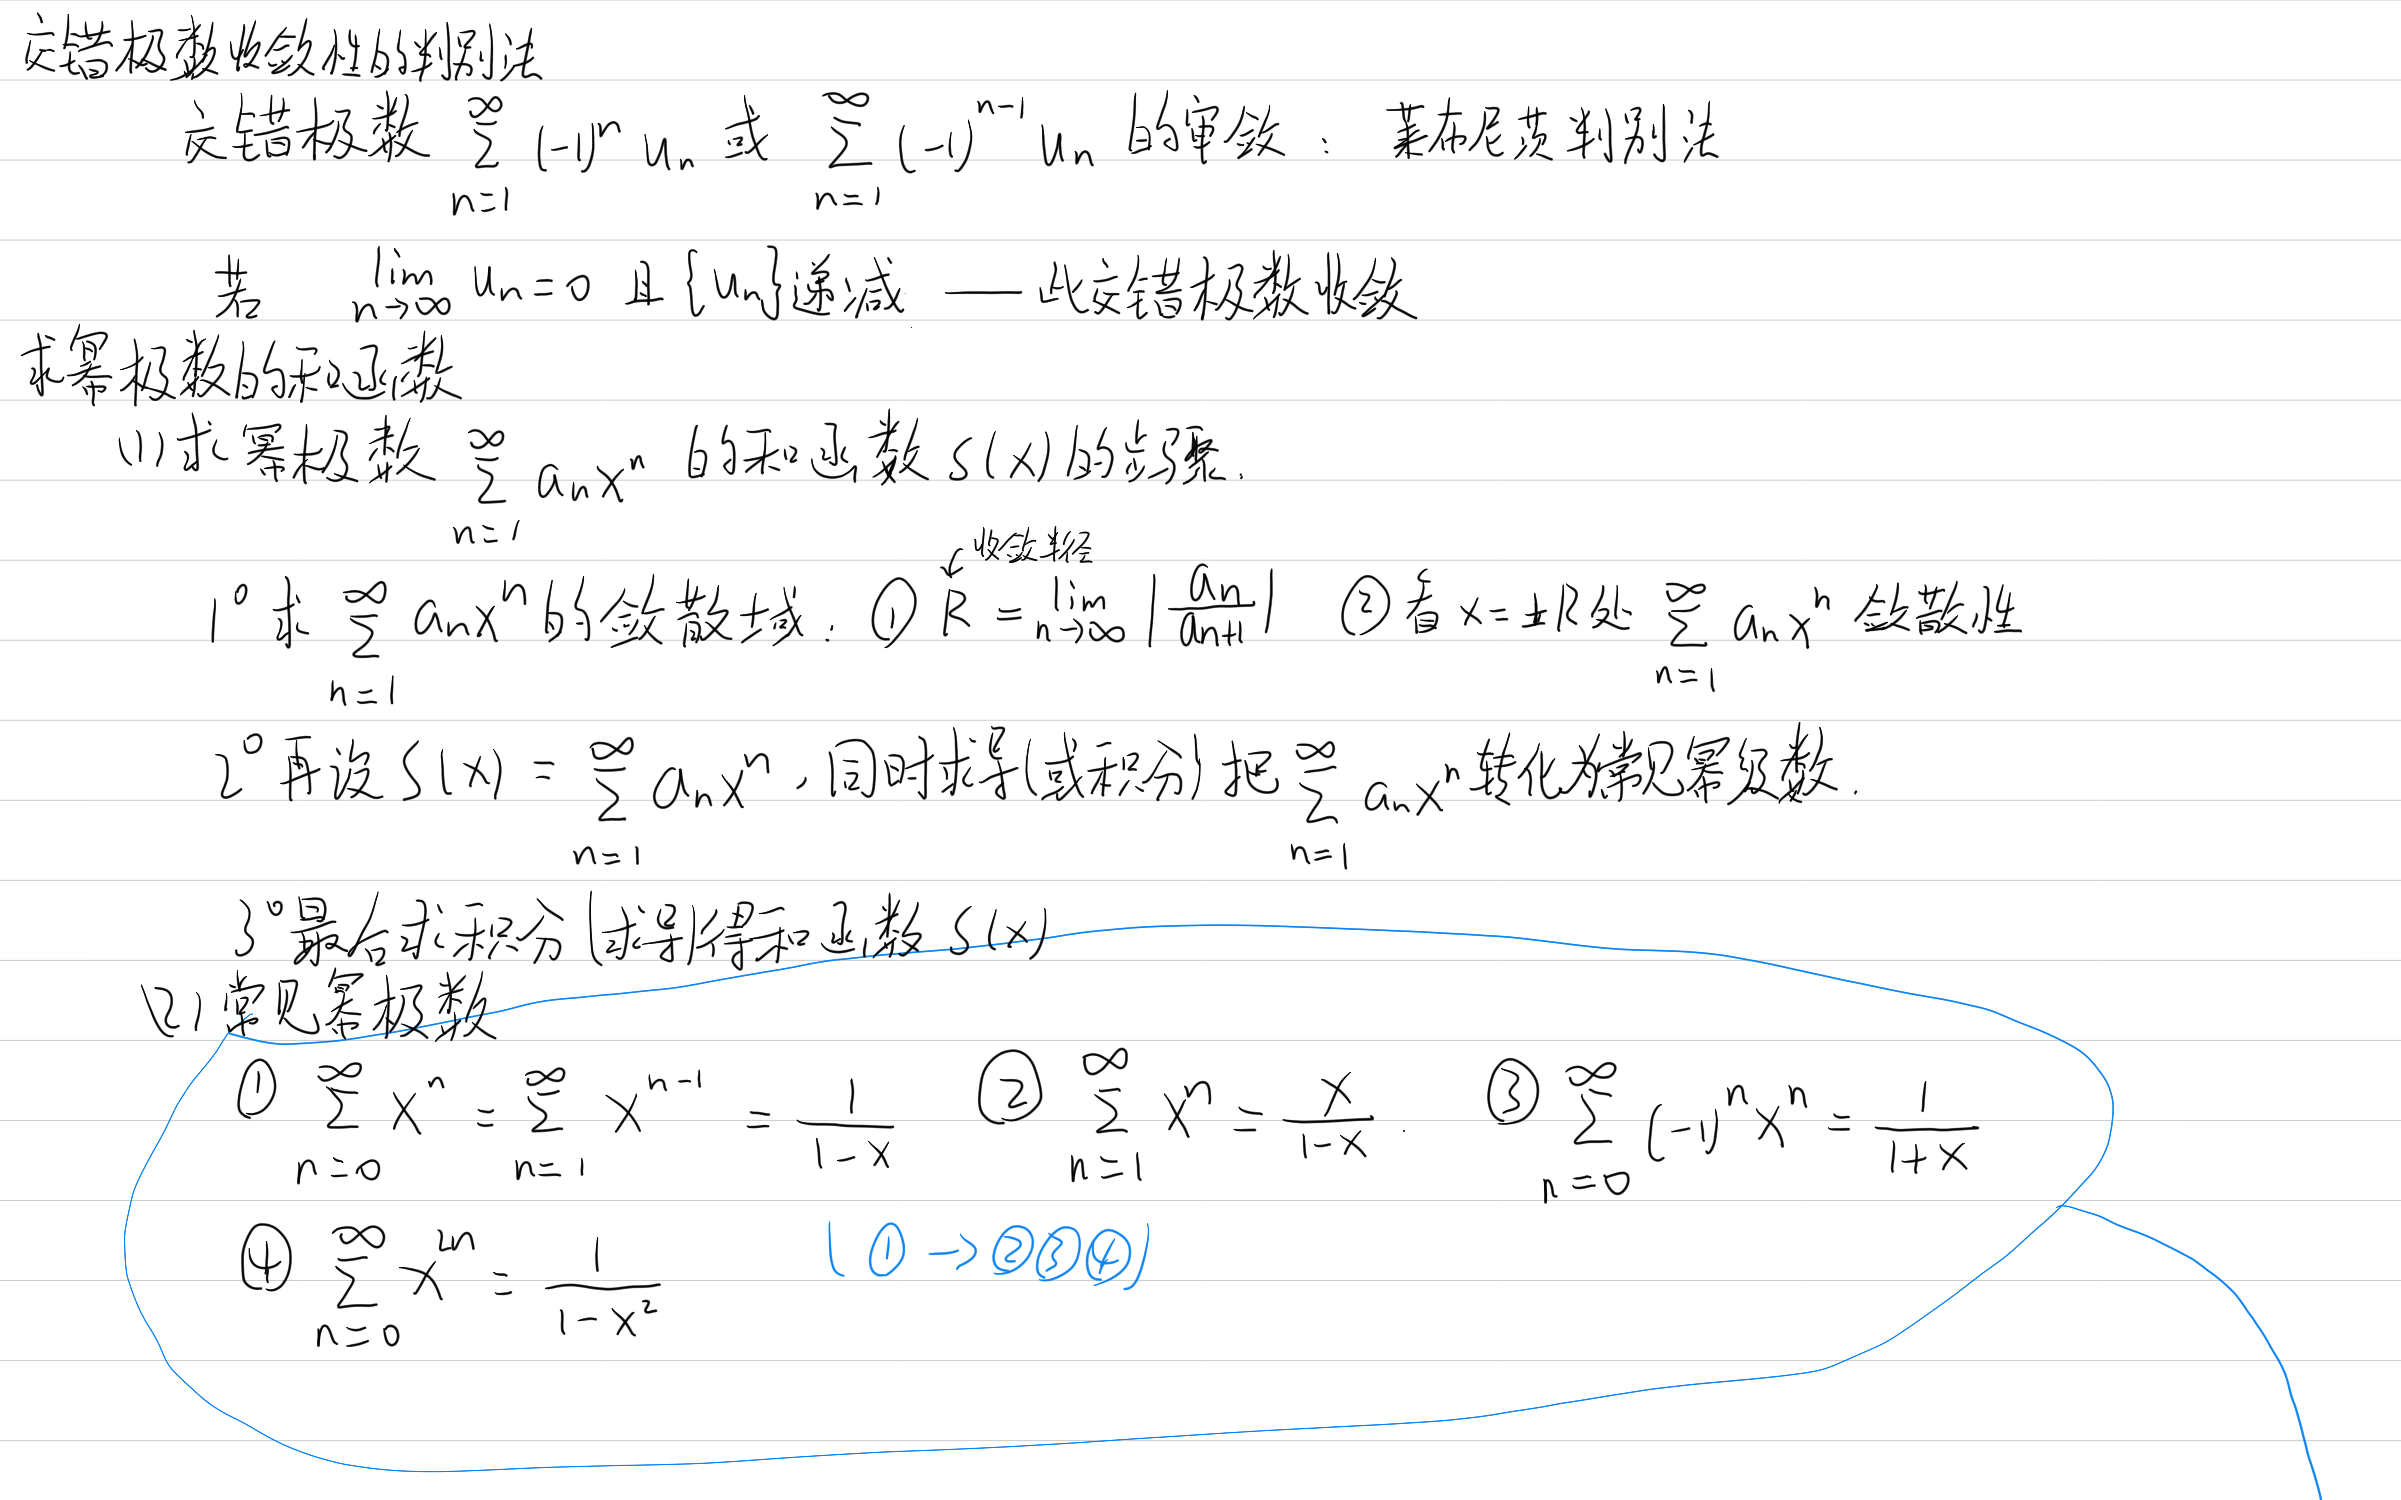 交错极数收敛性的判别法
交错极数 ∑_{n=1}^{∞} (-1)^n u_n 或 ∑_{n=1}^{∞} (-1)^{n-1} u_n 的审敛：莱布尼茨判别法
若 lim_{n→∞} u_n = 0 且 {u_n} 递减 —— 此交错极数收敛
求幂极数的和函数
(1) 求幂极数 ∑_{n=1}^{∞} a_n x^n 的和函数 S(x) 的步骤.
↙ 收敛半径
1° 求 ∑_{n=1}^{∞} a_n x^n 的敛散域： ① R = lim_{n→∞} |a_n / a_{n+1}| ② 看 x = ±R 处 ∑_{n=1}^{∞} a_n x^n 敛散性
2° 再设 S(x) = ∑_{n=1}^{∞} a_n x^n，同时求导(或积分) 把 ∑_{n=1}^{∞} a_n x^n 转化为常见幂级数.
3° 最后求积分(求导)得和函数 S(x)
(2) 常见幂极数
① ∑_{n=0}^{∞} x^n = ∑_{n=1}^{∞} x^{n-1} = 1/(1-x) ② ∑_{n=1}^{∞} x^n = x/(1-x). ③ ∑_{n=0}^{∞} (-1)^n x^n = 1/(1+x)
④ ∑_{n=0}^{∞} x^{2n} = 1/(1-x²) (① → ②③④)